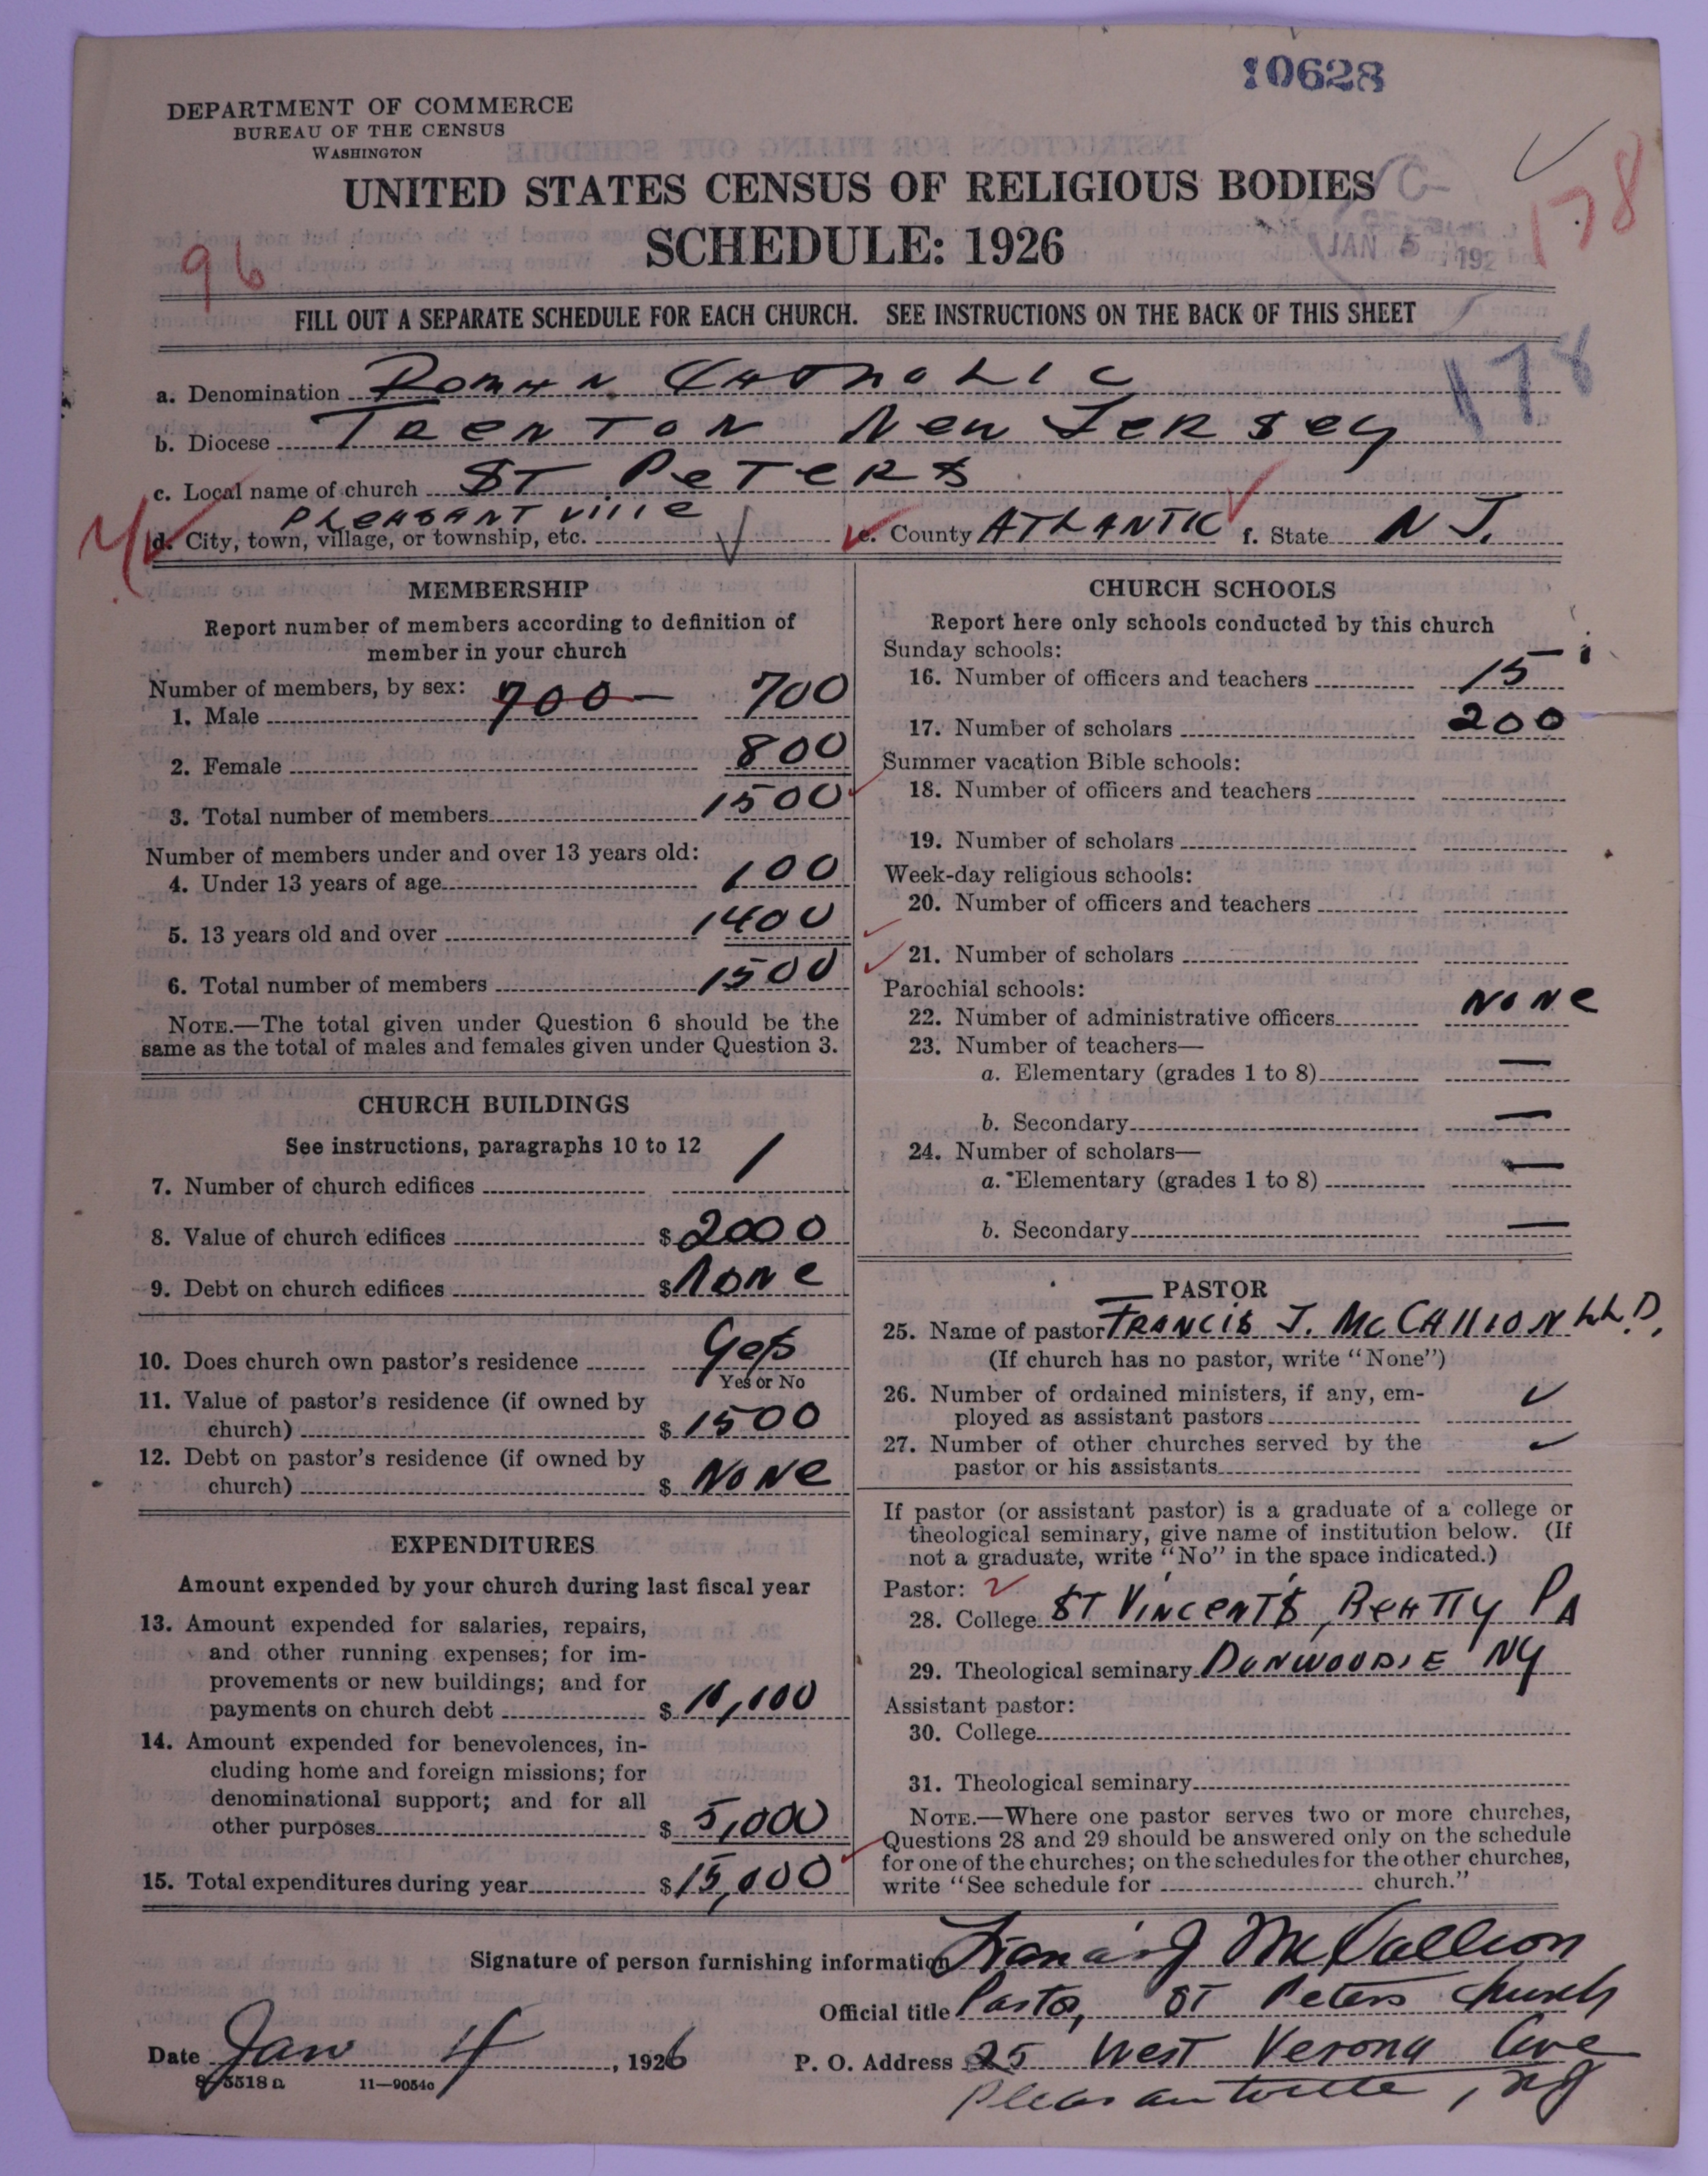 10628
DEPARTMENT OF COMMERCE
BUREAU OF THE CENSUS
WASHINGTON
UNITED STATES CENSUS OF RELIGIOUS BODIES
SCHEDULE: 1926
JAN 5 192
178
96
FILL OUT A SEPARATE SCHEDULE FOR EACH CHURCH. SEE INSTRUCTIONS ON THE BACK OF THIS SHEET
178
a. Denomination ROMAN CATHOLIC
b. Diocese TRENTON NEW JERSEY
c. Local name of church ST. PETERS
d. City, town, village, or township, etc. PLEASANTVILLE e. County ATLANTIC f. State N J.
MEMBERSHIP
Report number of members according to definition of
member in your church
Number of members, by sex:
1. Male 700 700
2. Female 800
3. Total number of members 1500
Number of members under and over 13 years old:
4. Under 13 years of age 100
5. 13 years old and over 1400
6. Total number of members 1500
NOTE.—The total given under Question 6 should be the
same as the total of males and females given under Question 3.
CHURCH BUILDINGS
See instructions, paragraphs 10 to 12
7. Number of church edifices 1
8. Value of church edifices $2000
9. Debt on church edifices $None
10. Does church own pastor's residence Yes
Yes or No
11. Value of pastor's residence (if owned by
church) $1500
12. Debt on pastor's residence (if owned by
church) $None
EXPENDITURES
Amount expended by your church during last fiscal year
13. Amount expended for salaries, repairs,
and other running expenses; for im-
provements or new buildings; and for
payments on church debt $
14. Amount expended for benevolences, in-
cluding home and foreign missions; for
denominational support; and for all
other purposes $5,000
15. Total expenditures during year $
CHURCH SCHOOLS
Report here only schools conducted by this church
Sunday schools:
16. Number of officers and teachers 15
17. Number of scholars 200
Summer vacation Bible schools:
18. Number of officers and teachers
19. Number of scholars
Week-day religious schools:
20. Number of officers and teachers
21. Number of scholars
Parochial schools:
22. Number of administrative officers None
23. Number of teachers—
a. Elementary (grades 1 to 8) —
b. Secondary —
24. Number of scholars—
a. Elementary (grades 1 to 8) —
b. Secondary —
PASTOR
25. Name of pastor FRANCIS J. McCALLION LL.D.
(If church has no pastor, write "None")
26. Number of ordained ministers, if any, em-
ployed as assistant pastors ✓
27. Number of other churches served by the
pastor or his assistants ✓
If pastor (or assistant pastor) is a graduate of a college or
theological seminary, give name of institution below. (If
not a graduate, write "No" in the space indicated.)
Pastor:
28. College ST VINCENT'S, BEATTY PA
29. Theological seminary DUNWOODIE NY
Assistant pastor:
30. College
31. Theological seminary
NOTE.—Where one pastor serves two or more churches,
Questions 28 and 29 should be answered only on the schedule
for one of the churches; on the schedules for the other churches,
write "See schedule for church."
Signature of person furnishing information Francis J McCallion
Official title Pastor, St Peters Church
Date Jan 4, 1926 P. O. Address 25 West Verona Ave
Pleasantville, NJ
8-5518a 11—9054o